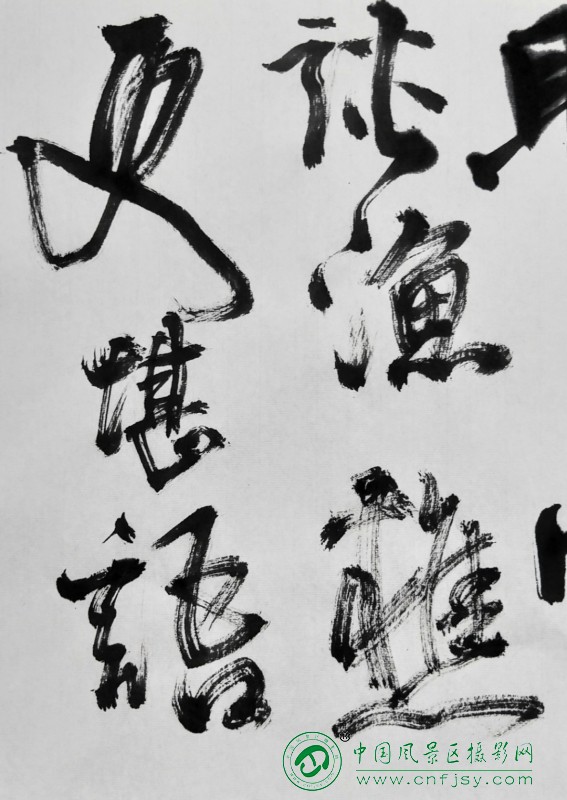 漁樵
更堪語
中国风景区摄影网
www.cnfjsy.com